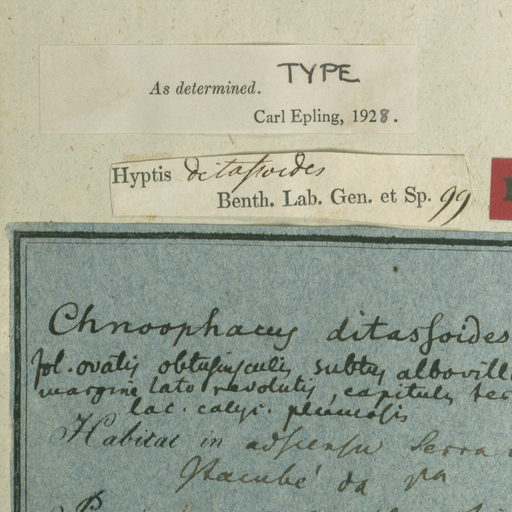 As determined. TYPE
Carl Epling, 1928.
Hyptis ditassoides
Benth. Lab. Gen. et Sp. 99
Chnoophacus ditassoides
fol. ovatis obtusiusculis subtus albovill
margine lato revolutis, capitulis
lac. calyc. plumosis
Habitat in adscensu Serra
Itacubé da